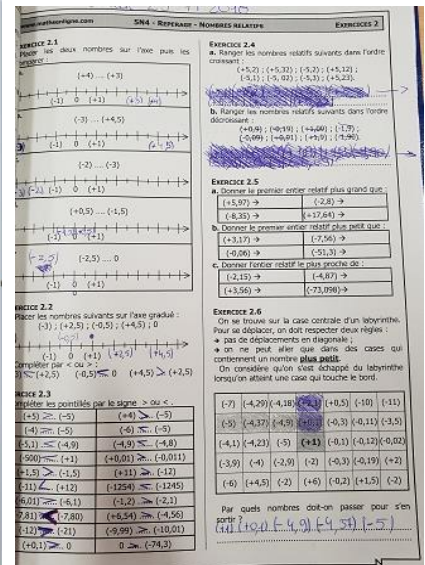 www.mathsenligne.com
5N4 - REPERAGE - NOMBRES RELATIFS
EXERCICES 2
EXERCICE 2.1
Placer les deux nombres sur l'axe puis les
comparer :
(+4) .... (+3)
(-1) 0 (+1) (+3) (+4)
(-3) .... (+4,5)
(-1) 0 (+1) (+4,5)
(-2) .... (-3)
(-3) (-2) (-1) 0 (+1)
(+0,5) .... (-1,5)
(-1) 0 (+1)
(-2,5) (-2,5) .... 0
(-1) 0 (+1)
EXERCICE 2.2
Placer les nombres suivants sur l'axe gradué :
(-3) ; (+2,5) ; (-0,5) ; (+4,5) ; 0
(-1) 0 (+1) (+2,5) (+4,5)
Compléter par < ou > :
(-3) < (+2,5) (-0,5) < 0 (+4,5) > (+2,5)
EXERCICE 2.3
Compléter les pointillés par le signe > ou < .
(+5) > (-5) (+4) > (-5)
(-4) > (-5) (-6) (-5)
(-5,1) < (-4,9) (-4,9) < (-4,8)
(-500) < (+1) (+0,01) > (-0,011)
(+1,5) > (-1,5) (+11) > (-12)
(-11) < (+12) (-1254) < (-1245)
(-6,01) (-6,1) (-1,2) > (-2,1)
(-7,81) < (-7,80) (+6,54) > (-4,56)
(-12) (-21) (-9,99) > (-10,01)
(+0,1) > 0 0 > (-74,3)
EXERCICE 2.4
a. Ranger les nombres relatifs suivants dans l'ordre
croissant :
(+5,2) ; (+5,32) ; (-5,2) ; (+5,12) ;
(-5,1) ; (-5,02) ; (-5,3) ; (+5,23).
b. Ranger les nombres relatifs suivants dans l'ordre
décroissant :
(+0,9) ; (-0,19) ; (+1,00) ; (-1,9) ;
(-0,09) ; (+0,01) ; (+1,9) ; (-1,90).
EXERCICE 2.5
a. Donner le premier entier relatif plus grand que :
(+5,97) → (-2,8) →
(-8,35) → (+17,64) →
b. Donner le premier entier relatif plus petit que :
(+3,17) → (-7,56) →
(-0,06) → (-51,3) →
c. Donner l'entier relatif le plus proche de :
(-2,15) → (-4,87) →
(+3,56) → (-73,098) →
EXERCICE 2.6
On se trouve sur la case centrale d'un labyrinthe.
Pour se déplacer, on doit respecter deux règles :
→ pas de déplacements en diagonale ;
→ on ne peut aller que dans des cases qui
contiennent un nombre plus petit.
On considère qu'on s'est échappé du labyrinthe
lorsqu'on atteint une case qui touche le bord.
(-7) (-4,29) (-4,18) (+0,5) (-10) (-11)
(-5) (-4,37) (-4,9) (-0,3) (-0,11) (-3,5)
(-4,1) (-4,23) (-5) (+1) (-0,1) (-0,12) (-0,02)
(-3,9) (-4) (-2,9) (-2) (-0,3) (-0,19) (+2)
(-6) (+4,5) (-2) (+6) (-0,2) (+1,5) (-2)
Par quels nombres doit-on passer pour s'en
sortir ?
(-4,9) (-4,37) (-5)